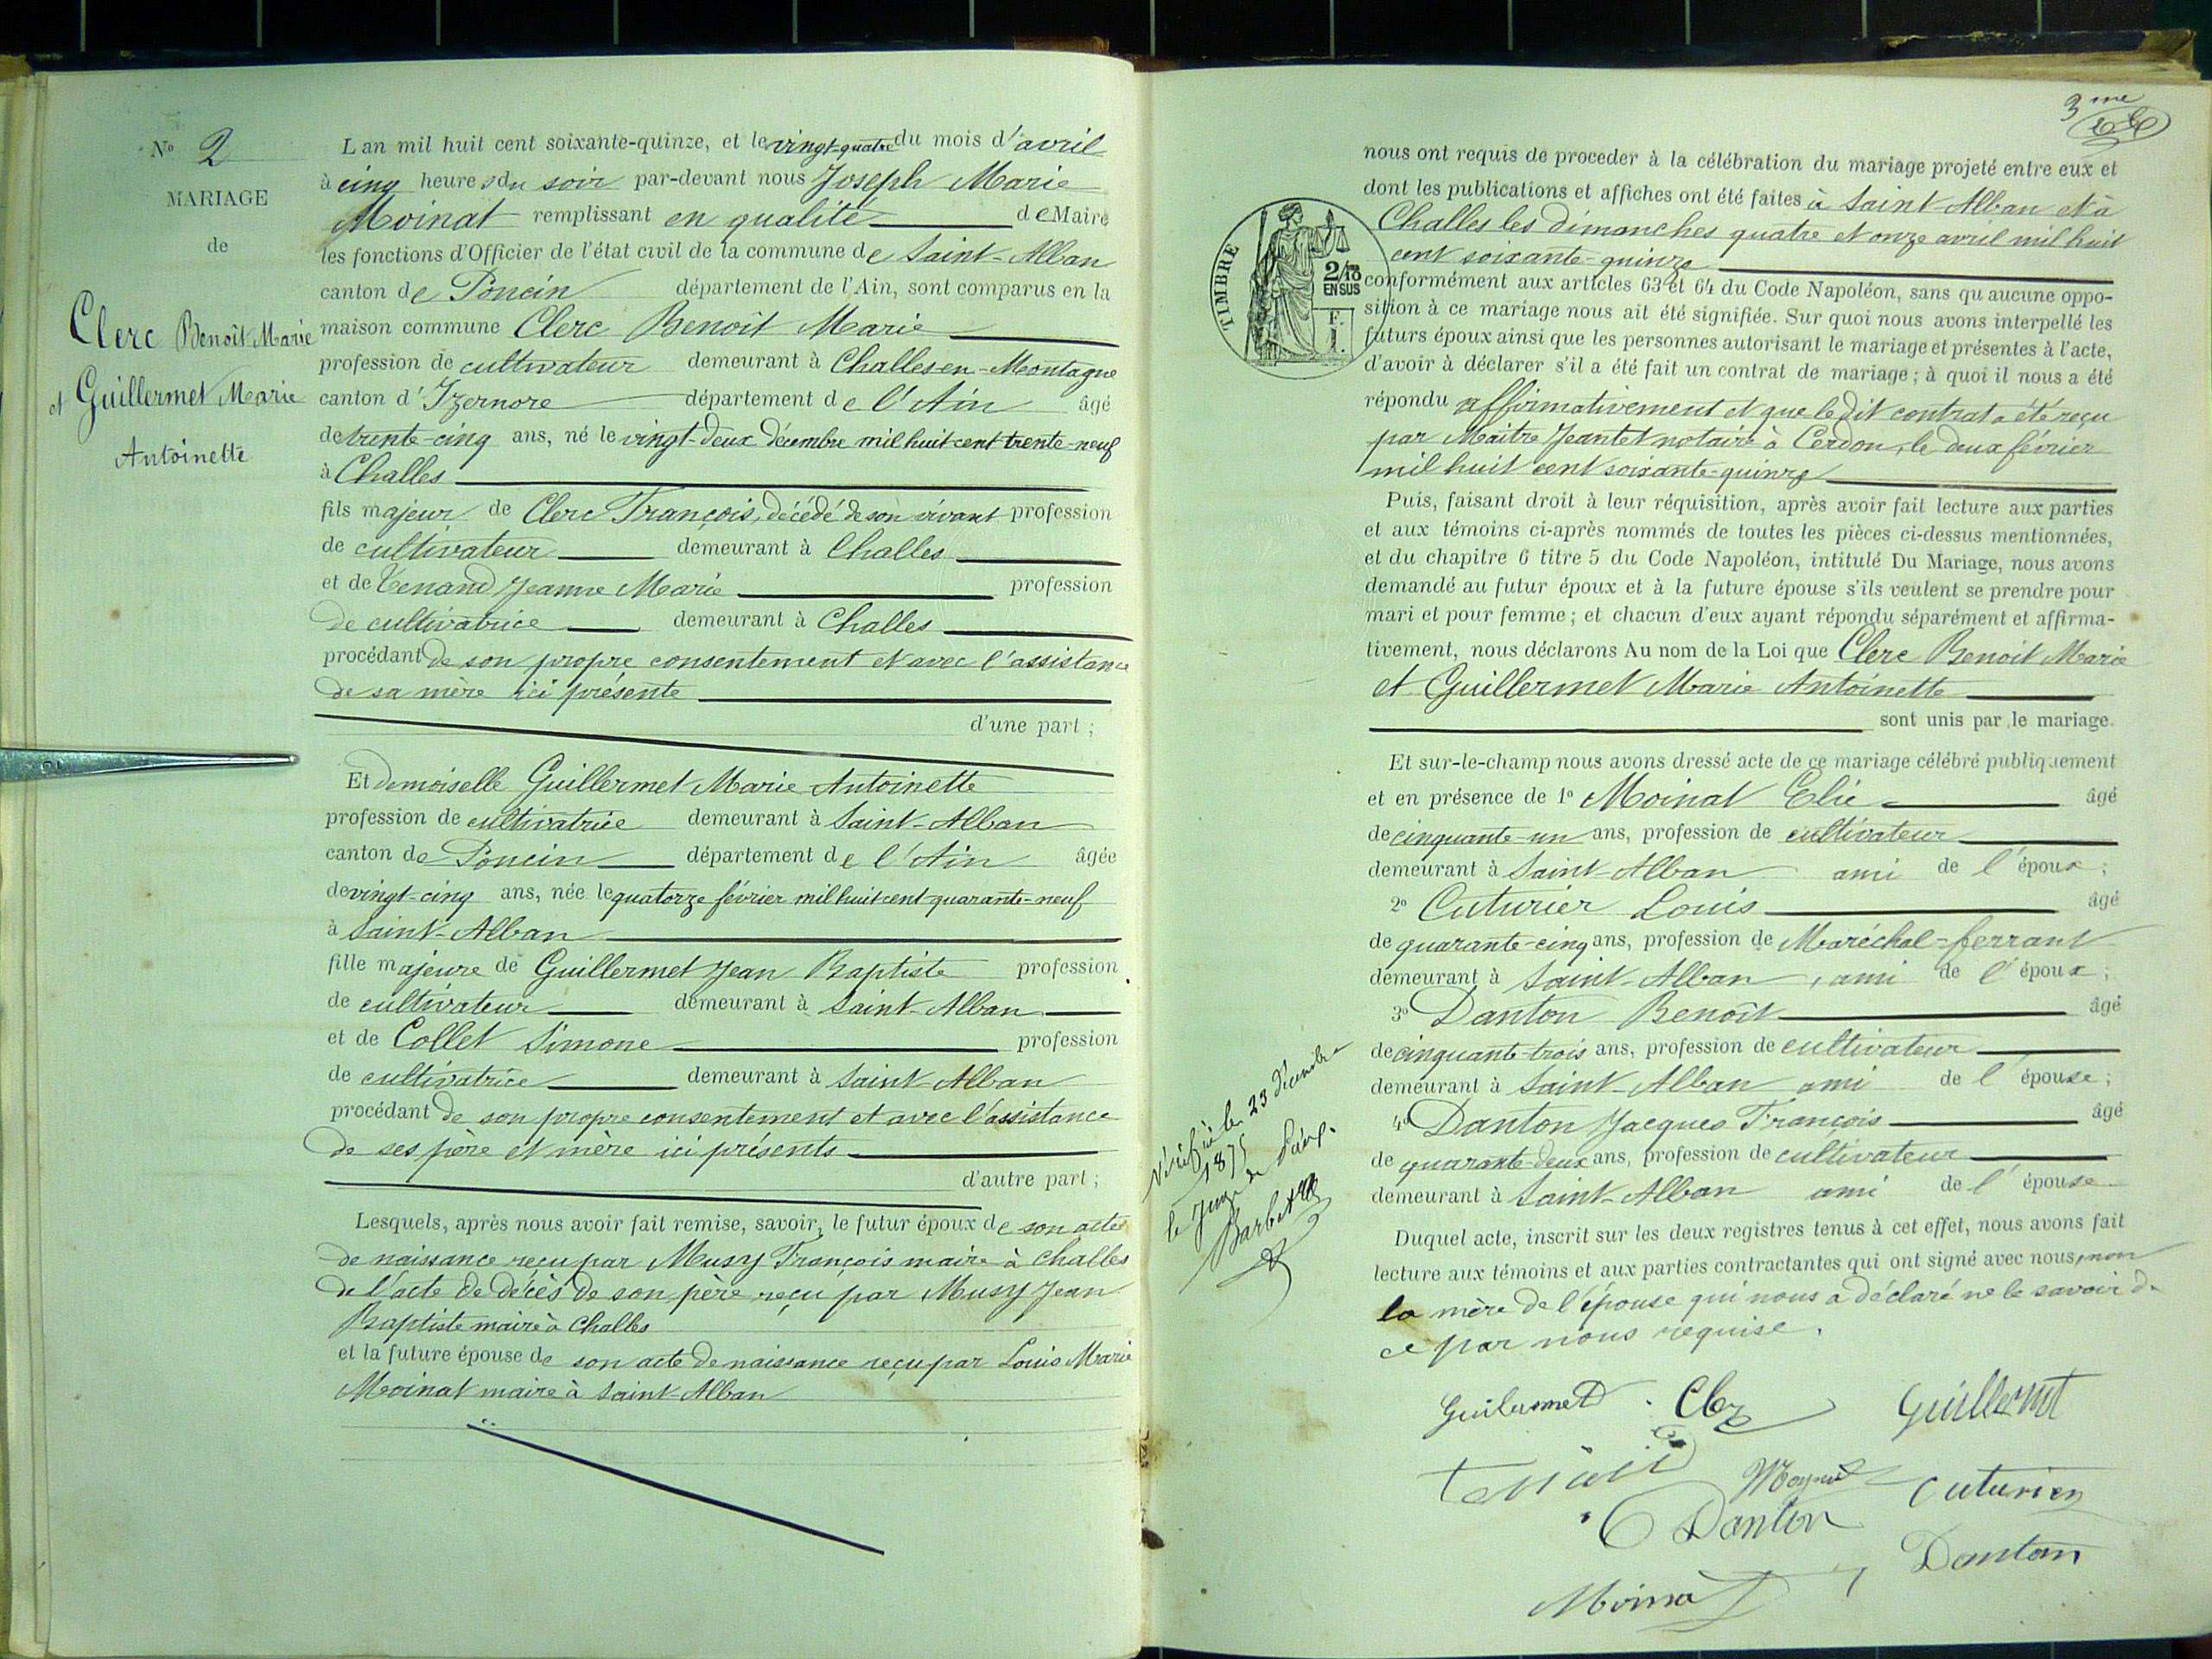 N° 2
MARIAGE
de
Clerc Benoît Marie
et Guillermet Marie
Antoinette
L'an mil huit cent soixante-quinze, et le vingt-quatre du mois d'avril
à cinq heures du soir par-devant nous Joseph Marie
Moinat remplissant en qualité de Maire
les fonctions d'Officier de l'état civil de la commune de Saint-Alban
canton de Poncin département de l'Ain, sont comparus en la
maison commune Clerc Benoît Marie
profession de cultivateur demeurant à Challes en-Montagne
canton d'Izernore département de l'Ain âgé
de trente-cinq ans, né le vingt-deux décembre mil huit cent trente-neuf
à Challes
fils majeur de Clerc François, décédé de son vivant profession
de cultivateur demeurant à Challes
et de Tenand Jeanne Marie profession
de cultivatrice demeurant à Challes
procédant de son propre consentement et avec l'assistance
de sa mère ici présente
d'une part ;
Et demoiselle Guillermet Marie Antoinette
profession de cultivatrice demeurant à Saint-Alban
canton de Poncin département de l'Ain âgée
de vingt-cinq ans, née le quatorze février mil huit cent quarante-neuf
à Saint-Alban
fille majeure de Guillermet Jean Baptiste profession
de cultivateur demeurant à Saint-Alban
et de Collet Simone profession
de cultivatrice demeurant à Saint-Alban
procédant de son propre consentement et avec l'assistance
de ses père et mère ici présents
d'autre part ;
Lesquels, après nous avoir fait remise, savoir, le futur époux de son acte
de naissance reçu par Musy François maire à Challes
de l'acte de décès de son père reçu par Musy Jean
Baptiste maire à Challes
et la future épouse de son acte de naissance reçu par Louis Marie
Moinat maire à Saint-Alban
3me
nous ont requis de proceder à la célébration du mariage projeté entre eux et
dont les publications et affiches ont été faites à Saint-Alban et à
Challes les dimanches quatre et onze avril mil huit
cent soixante-quinze
TIMBRE
2/10
EN SUS
conformément aux articles 63 et 64 du Code Napoléon, sans qu'aucune oppo-
sition à ce mariage nous ait été signifiée. Sur quoi nous avons interpellé les
futurs époux ainsi que les personnes autorisant le mariage et présentes à l'acte,
d'avoir à déclarer s'il a été fait un contrat de mariage ; à quoi il nous a été
répondu affirmativement et que le dit contrat a été reçu
par Maître Jeantet notaire à Cerdon, le deux février
mil huit cent soixante-quinze
Puis, faisant droit à leur réquisition, après avoir fait lecture aux parties
et aux témoins ci-après nommés de toutes les pièces ci-dessus mentionnées,
et du chapitre 6 titre 5 du Code Napoléon, intitulé Du Mariage, nous avons
demandé au futur époux et à la future épouse s'ils veulent se prendre pour
mari et pour femme ; et chacun d'eux ayant répondu séparément et affirma-
tivement, nous déclarons Au nom de la Loi que Clerc Benoit Marie
et Guillermet Marie Antoinette
sont unis par le mariage.
Et sur-le-champ nous avons dressé acte de ce mariage célébré publiquement
et en présence de 1° Moinat Elie âgé
de cinquante-un ans, profession de cultivateur
demeurant à Saint-Alban ami de l'époux ;
2° Cuturier Louis âgé
de quarante-cinq ans, profession de Maréchal-ferrant
demeurant à Saint-Alban, ami de l'époux ;
3° Danton Benoît âgé
de cinquante-trois ans, profession de cultivateur
demeurant à Saint-Alban ami de l'épouse ;
4° Danton Jacques François âgé
de quarante-deux ans, profession de cultivateur
demeurant à Saint-Alban ami de l'épouse
Duquel acte, inscrit sur les deux registres tenus à cet effet, nous avons fait
lecture aux témoins et aux parties contractantes qui ont signé avec nous, non
la mère de l'épouse qui nous a déclaré ne le savoir de
ce par nous requise.
Vérifié le 23 décembre
1875
le Juge de Paix
Barbet
Guilermet Clerc Guillermet
tenand
Cuturier
Danton
Danton
Moinat